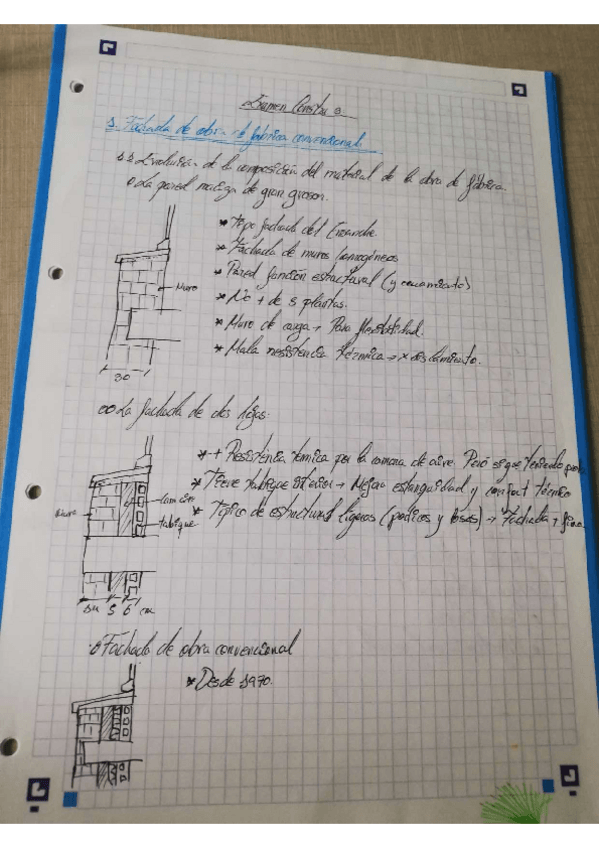 Examen Constru 3
1. Fachada de obra de fábrica convencional
1.1 Evolución de la composición del material de la obra de fábrica.
La pared maciza de gran grosor.
* Tipo fachada del Ensanche.
* Fachada de muros homogéneos
* Pared función estructural (y cerramiento)
* No + de 5 plantas.
Muro
* Muro de carga → Poca flexibilidad.
* Mala resistencia térmica → x aislamiento.
30
La fachada de dos hojas:
* + Resistencia térmica por la cámara de aire. Pero sigue teniendo
* Tiene tabique interior → Mejora estanquidad y confort térmico
* Típico de estructuras ligeras (pórticos y losas) → Fachada + fina
Muro
tabique
14 5 6 cm
Fachada de obra convencional
* Desde 1970.